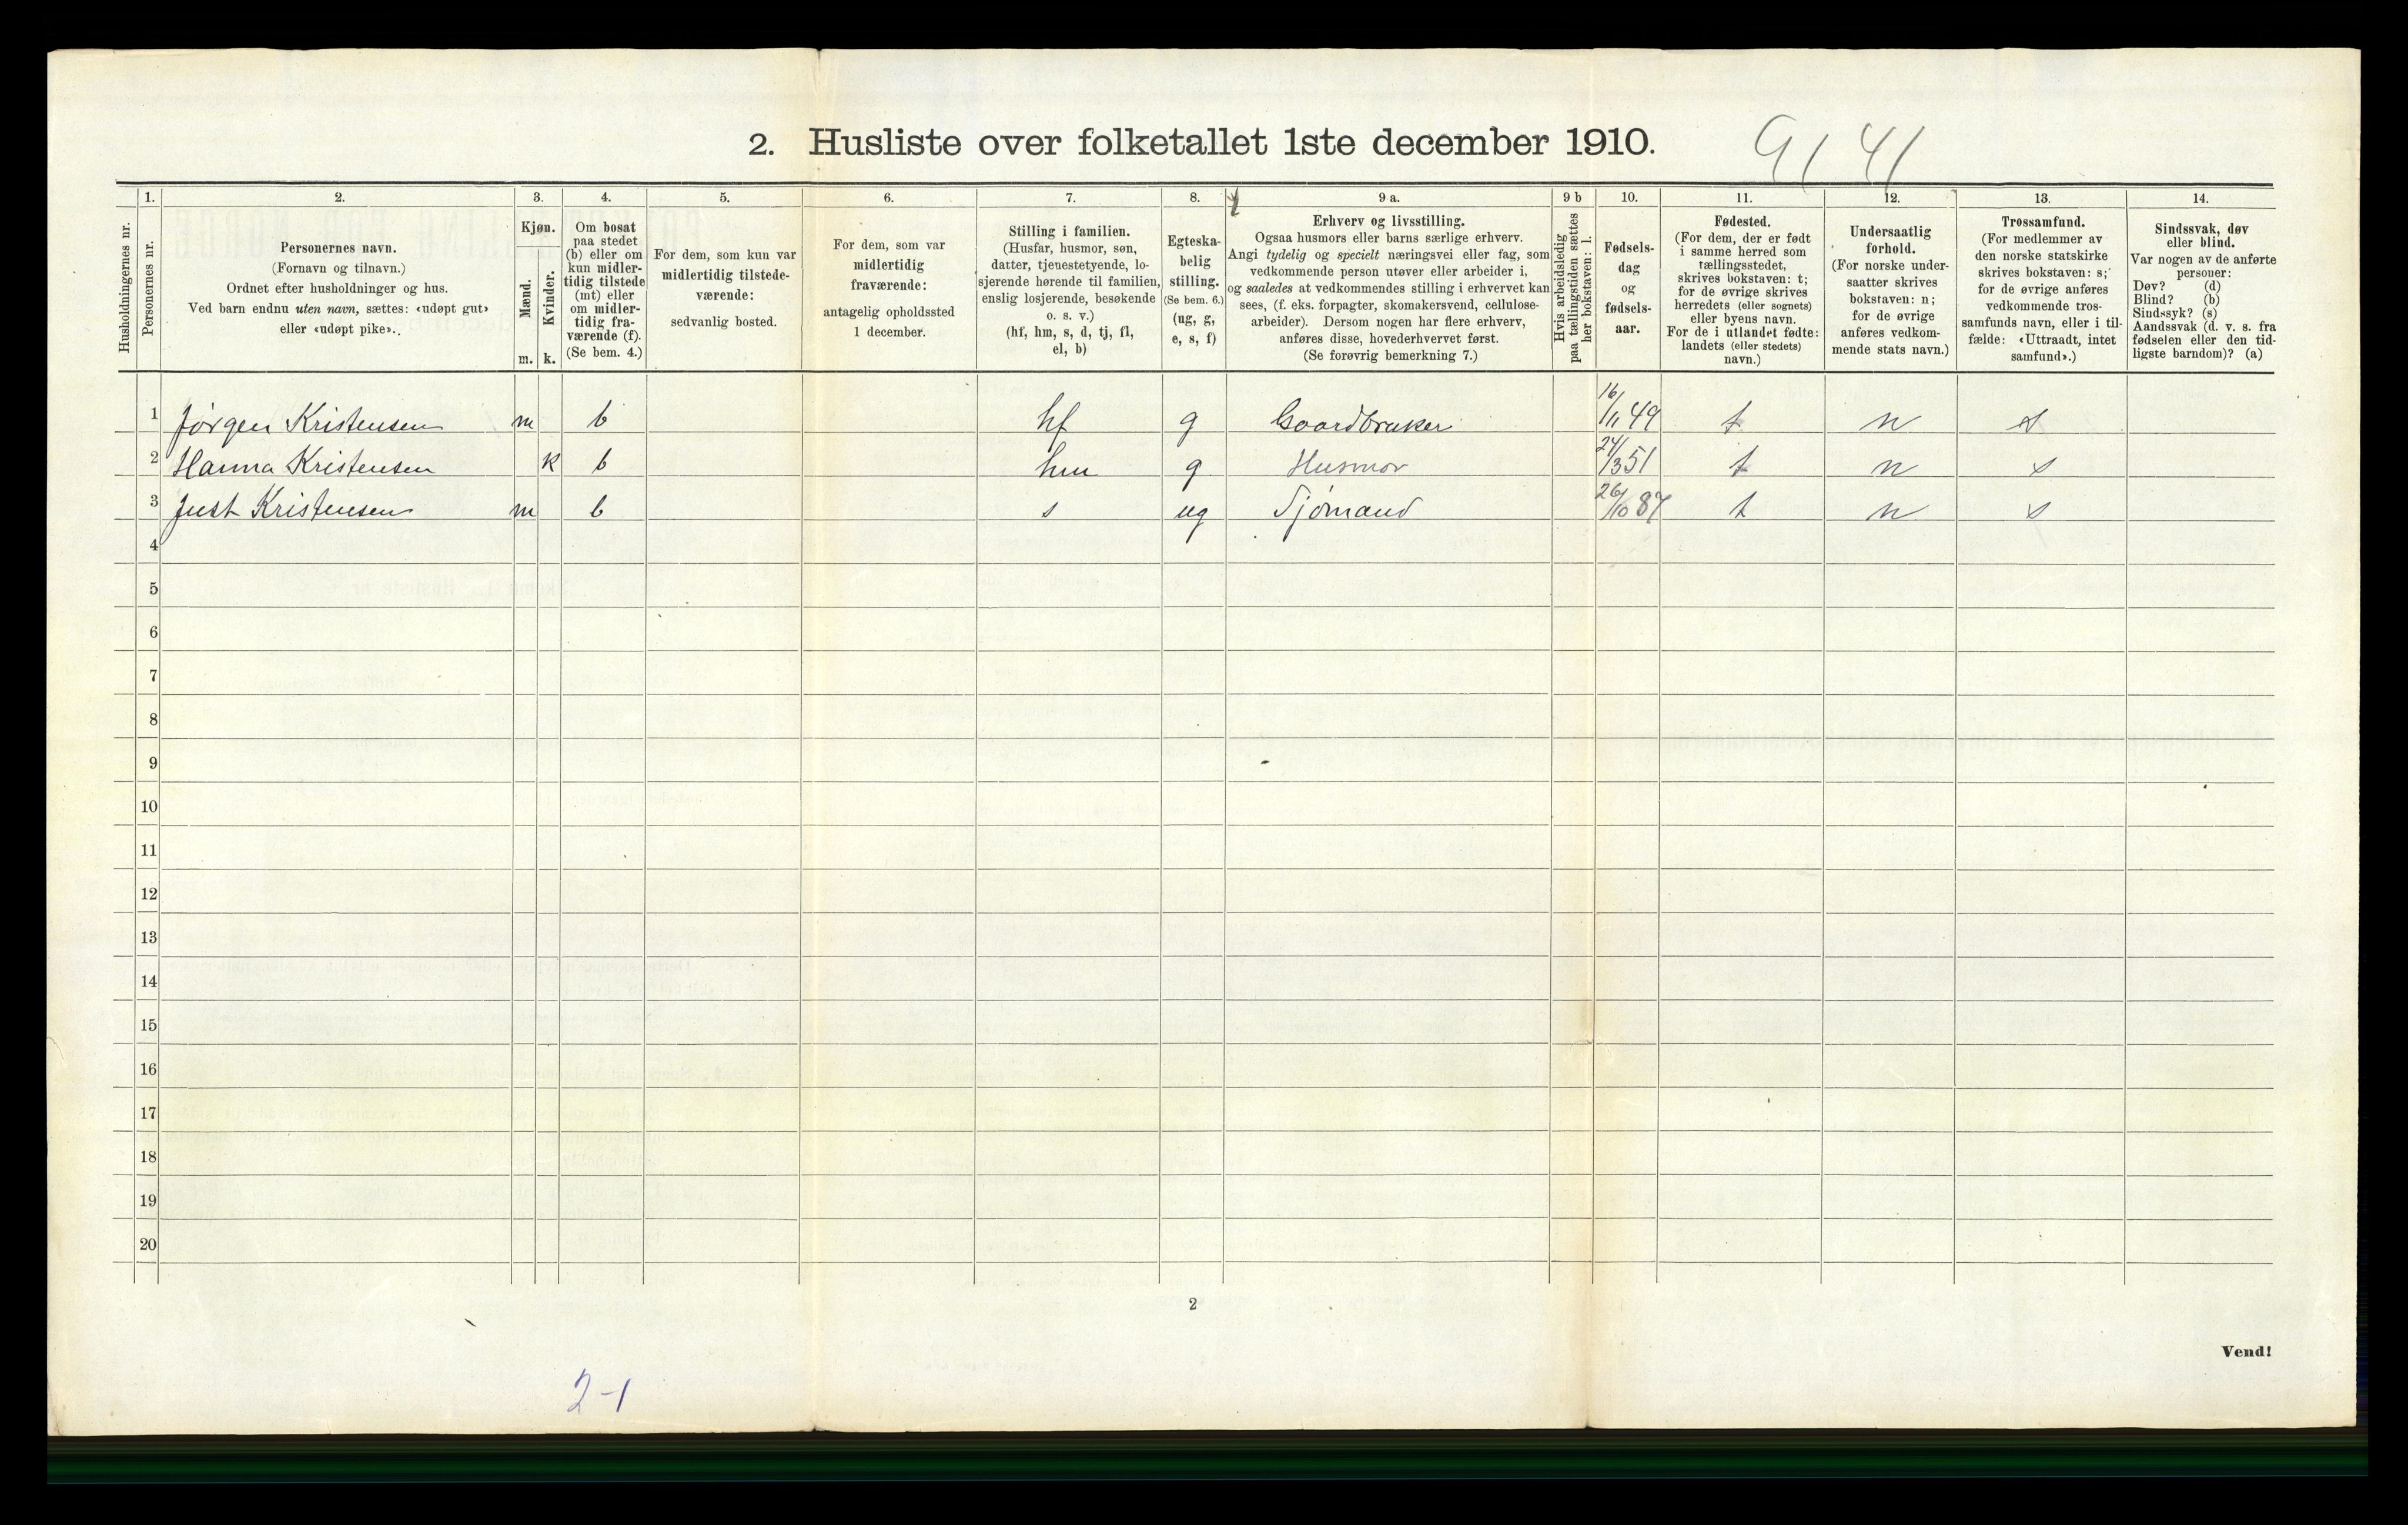 2. Husliste over folketallet 1ste december 1910.
9/41
1. 2. 3. 4. 5. 6. 7. 8. 9 a. 9 b 10. 11. 12. 13. 14.
Husholdningernes nr.
Personernes nr.
Personernes navn.
(Fornavn og tilnavn.)
Ordnet efter husholdninger og hus.
Ved barn endnu uten navn, sættes: «udøpt gut»
eller «udøpt pike».
Kjøn.
Mænd.
m.
Kvinder.
k.
Om bosat
paa stedet
(b) eller om
kun midler-
tidig tilstede
(mt) eller
om midler-
tidig fra-
værende (f).
(Se bem. 4.)
For dem, som kun var
midlertidig tilstede-
værende:
sedvanlig bosted.
For dem, som var
midlertidig
fraværende:
antagelig opholdssted
1 december.
Stilling i familien.
(Husfar, husmor, søn,
datter, tjenestetyende, lo-
sjerende hørende til familien,
enslig losjerende, besøkende
o. s. v.)
(hf, hm, s, d, tj, fl,
el, b)
Egteska-
belig
stilling.
(Se bem. 6.)
(ug, g,
e, s, f)
Erhverv og livsstilling.
Ogsaa husmors eller barns særlige erhverv.
Angi tydelig og specielt næringsvei eller fag, som
vedkommende person utøver eller arbeider i,
og saaledes at vedkommendes stilling i erhvervet kan
sees, (f. eks. forpagter, skomakersvend, cellulose-
arbeider). Dersom nogen har flere erhverv,
anføres disse, hovederhvervet først.
(Se forøvrig bemerkning 7.)
Hvis arbeidsledig
paa tællingstiden sættes
her bokstaven: l.
Fødsels-
dag
og
fødsels-
aar.
Fødested.
(For dem, der er født
i samme herred som
tællingsstedet,
skrives bokstaven: t;
for de øvrige skrives
herredets (eller sognets)
eller byens navn.
For de i utlandet fødte:
landets (eller stedets)
navn.)
Undersaatlig
forhold.
(For norske under-
saatter skrives
bokstaven: n;
for de øvrige
anføres vedkom-
mende stats navn.)
Trossamfund.
(For medlemmer av
den norske statskirke
skrives bokstaven: s;
for de øvrige anføres
vedkommende tros-
samfunds navn, eller i til-
fælde: «Uttraadt, intet
samfund».)
Sindssvak, døv
eller blind.
Var nogen av de anførte
personer:
Døv? (d)
Blind? (b)
Sindssyk? (s)
Aandssvak (d. v. s. fra
fødselen eller den tid-
ligste barndom)? (a)
1 Jørgen Kristensen m b hf g Gaardbruker 16/11 49 t n s
2 Hanna Kristensen k b hm g Husmor 24/3 51 t n s
3 Just Kristensen m b s ug Sjømand 26/10 87 t n s
4
5
6
7
8
9
10
11
12
13
14
15
16
17
18
19
20
2
Vend!
2-1